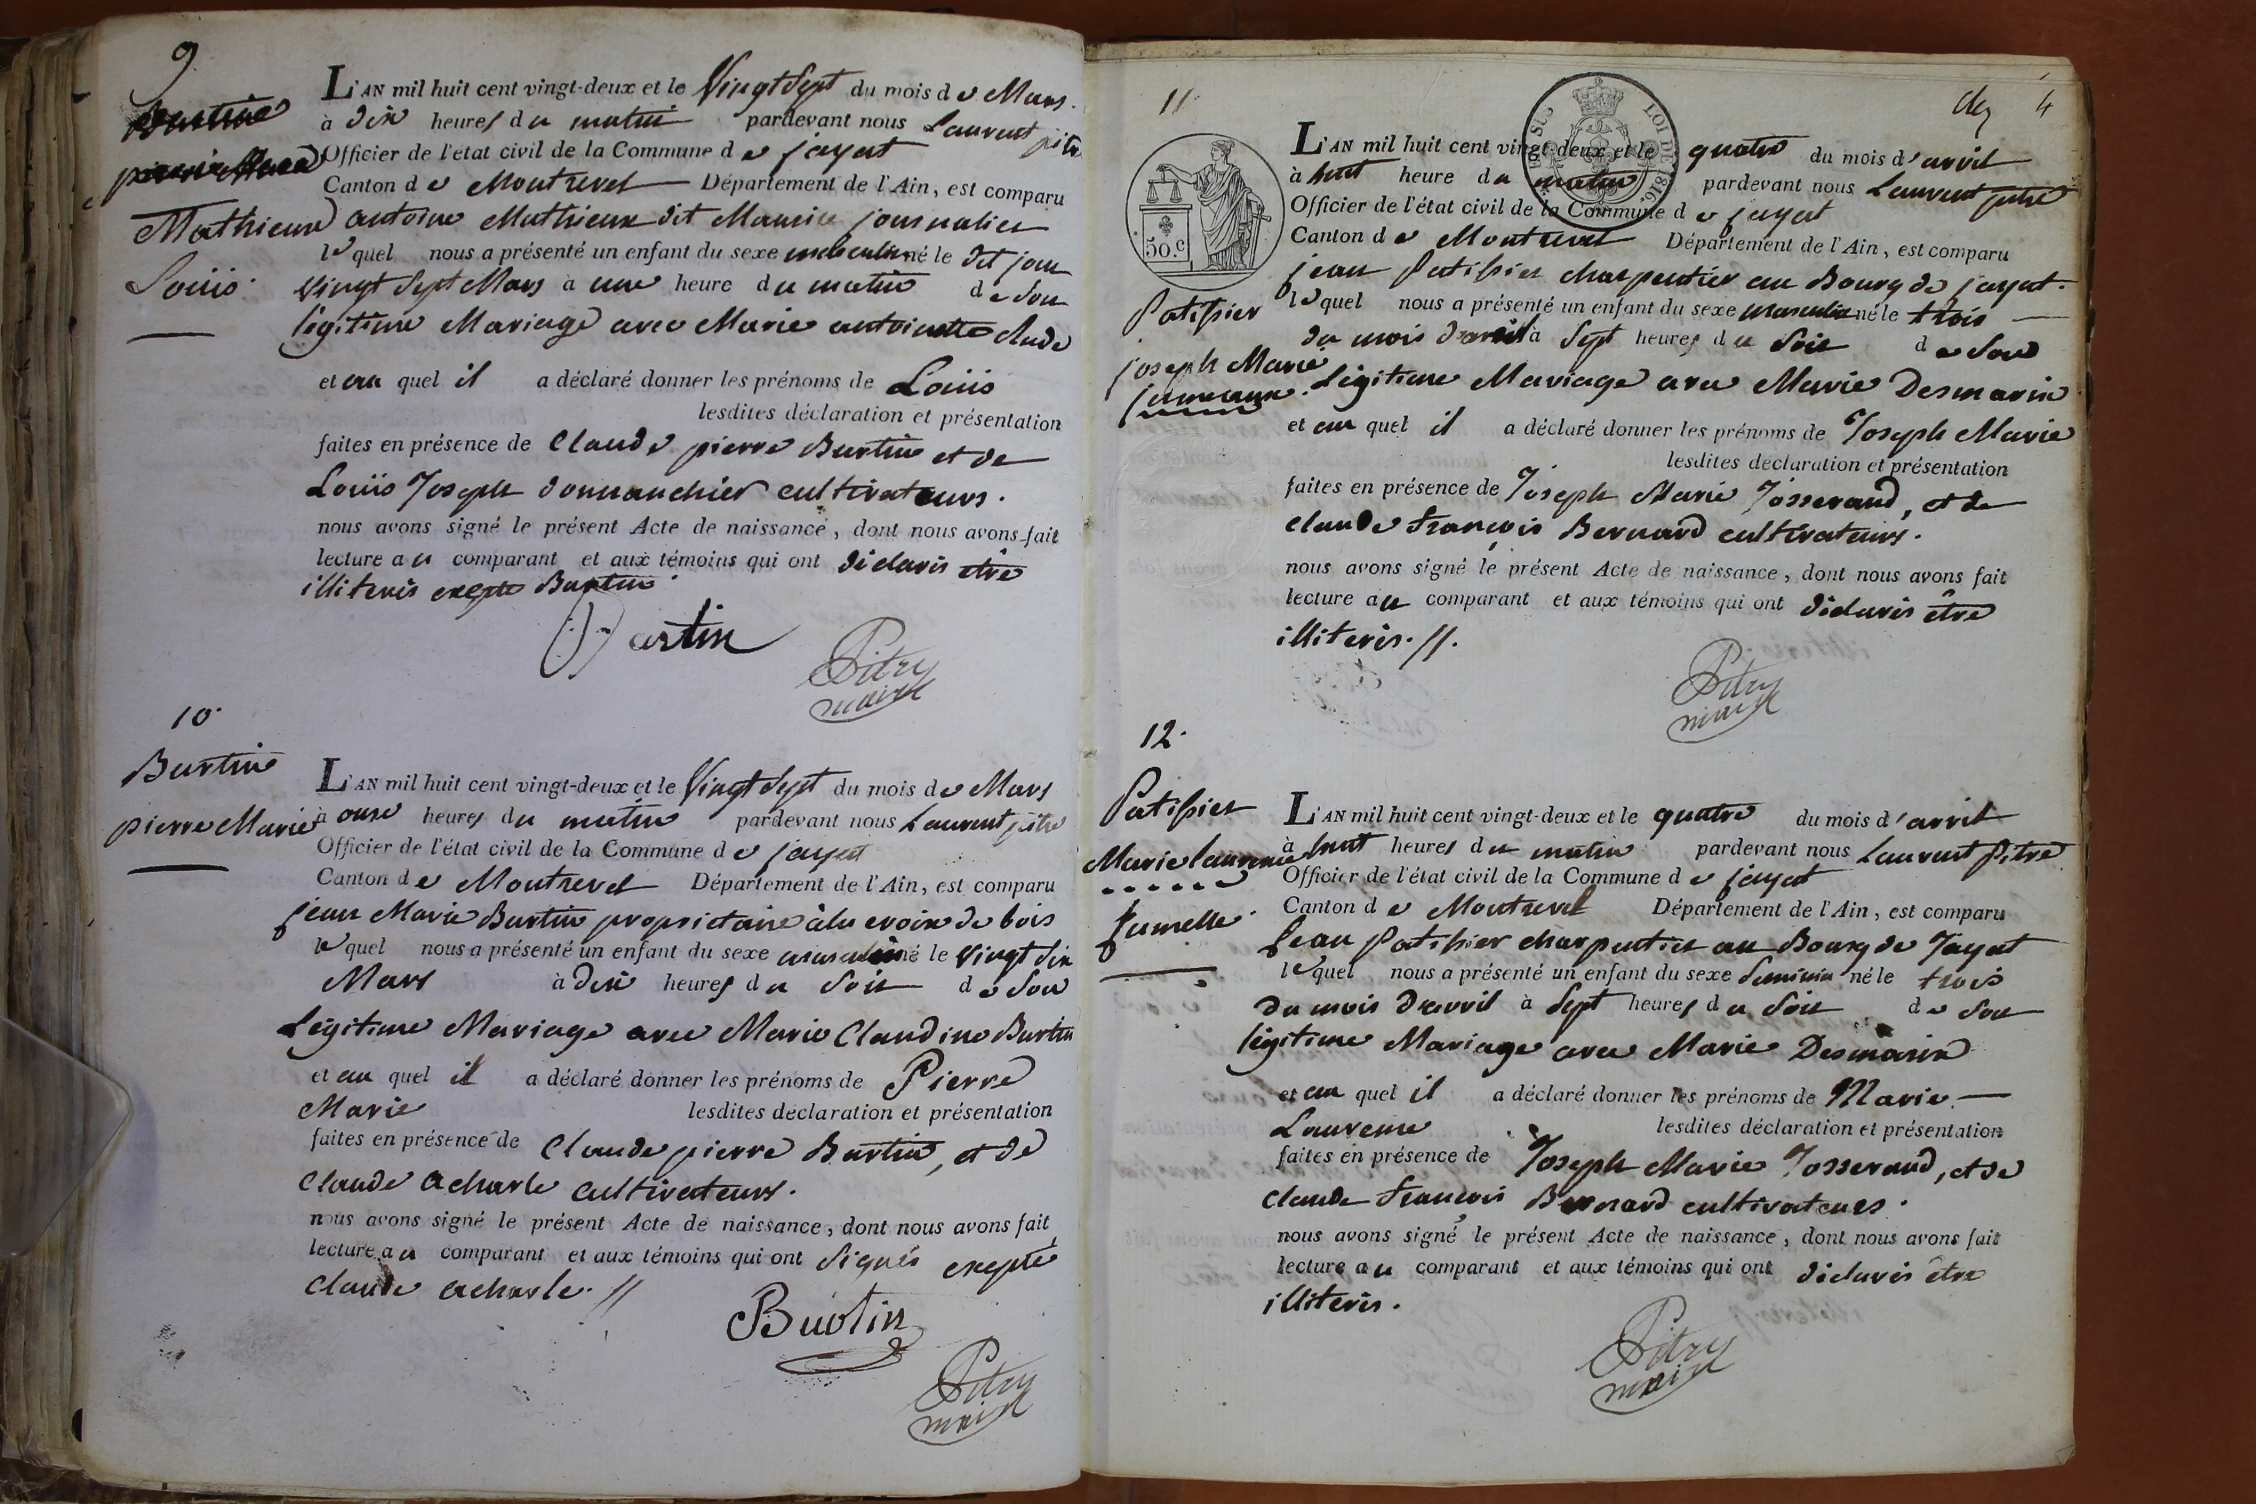 9.
Mathieux
Louis.
L'AN mil huit cent vingt-deux et le Vingt Sept du mois de Mars.
à dix heures du matin pardevant nous Laurent pitre
Officier de l'état civil de la Commune de jayat
Canton de Montrevel Département de l'Ain, est comparu
antoine Mathieux dit Maurice journalier
lequel nous a présenté un enfant du sexe masculin né le dit jour
Vingt Sept Mars à une heure du matin de Son
légitime Mariage avec Marie antoinette
et au quel il a déclaré donner les prénoms de Louis
lesdites déclaration et présentation
faites en présence de Claude pierre Burtin et de
Louis Joseph donnanchier cultivateurs.
nous avons signé le présent Acte de naissance, dont nous avons fait
lecture au comparant et aux témoins qui ont déclarés être
illiterés excepté Burtin.
Burtin
Pitre
maire
10.
Burtin
pierre Marie
L'AN mil huit cent vingt-deux et le Vingt Sept du mois de Mars
à onze heures du matin pardevant nous Laurent pitre
Officier de l'état civil de la Commune de jayat
Canton de Montrevel Département de l'Ain, est comparu
jean Marie Burtin propriétaire à la croix de bois
lequel nous a présenté un enfant du sexe masculin né le Vingt Six
Mars à dix heures du Soir de Son
Légitime Mariage avec Marie Claudine Burtin
et au quel il a déclaré donner les prénoms de Pierre
Marie lesdites déclaration et présentation
faites en présence de Claude pierre Burtin, et de
Claude acharle cultivateurs.
nous avons signé le présent Acte de naissance, dont nous avons fait
lecture au comparant et aux témoins qui ont Signés excepté
Claude acharle. //
Burtin
Pitre
maire
11.
4
LOI DE 1816
50.c
Patissier
joseph Marie
jumeaux.
L'AN mil huit cent vingt-deux et le quatre du mois d'avril
à huit heure du matin pardevant nous Laurent pitre
Officier de l'état civil de la Commune de jayat
Canton de Montrevel Département de l'Ain, est comparu
jean Patissier charpentier au Bourg de jayat.
lequel nous a présenté un enfant du sexe masculin né le trois
du mois d'avril à Sept heures du Soir de Son
Légitime Mariage avec Marie Desmaris
et au quel il a déclaré donner les prénoms de Joseph Marie
lesdites déclaration et présentation
faites en présence de Joseph Marie Josserand, et de
claude françois Bernard cultivateurs.
nous avons signé le présent Acte de naissance, dont nous avons fait
lecture au comparant et aux témoins qui ont déclarés être
illiterés. //.
Pitre
maire
12.
Patissier
Marie laurence
jumelle.
L'AN mil huit cent vingt-deux et le quatre du mois d'avril
à huit heures du matin pardevant nous Laurent Pitre
Officier de l'état civil de la Commune de jayat
Canton de Montrevel Département de l'Ain, est comparu
Jean Patissier charpentier au Bourg de Jayat
lequel nous a présenté un enfant du sexe feminin né le trois
du mois d'avril à Sept heures du Soir de Son
légitime Mariage avec Marie Desmaris
et au quel il a déclaré donner les prénoms de Marie
Laurence lesdites déclaration et présentation
faites en présence de Joseph Marie Josserand, et de
claude françois Bernard cultivateurs.
nous avons signé le présent Acte de naissance, dont nous avons fait
lecture au comparant et aux témoins qui ont déclarés être
illiterés.
Pitre
maire